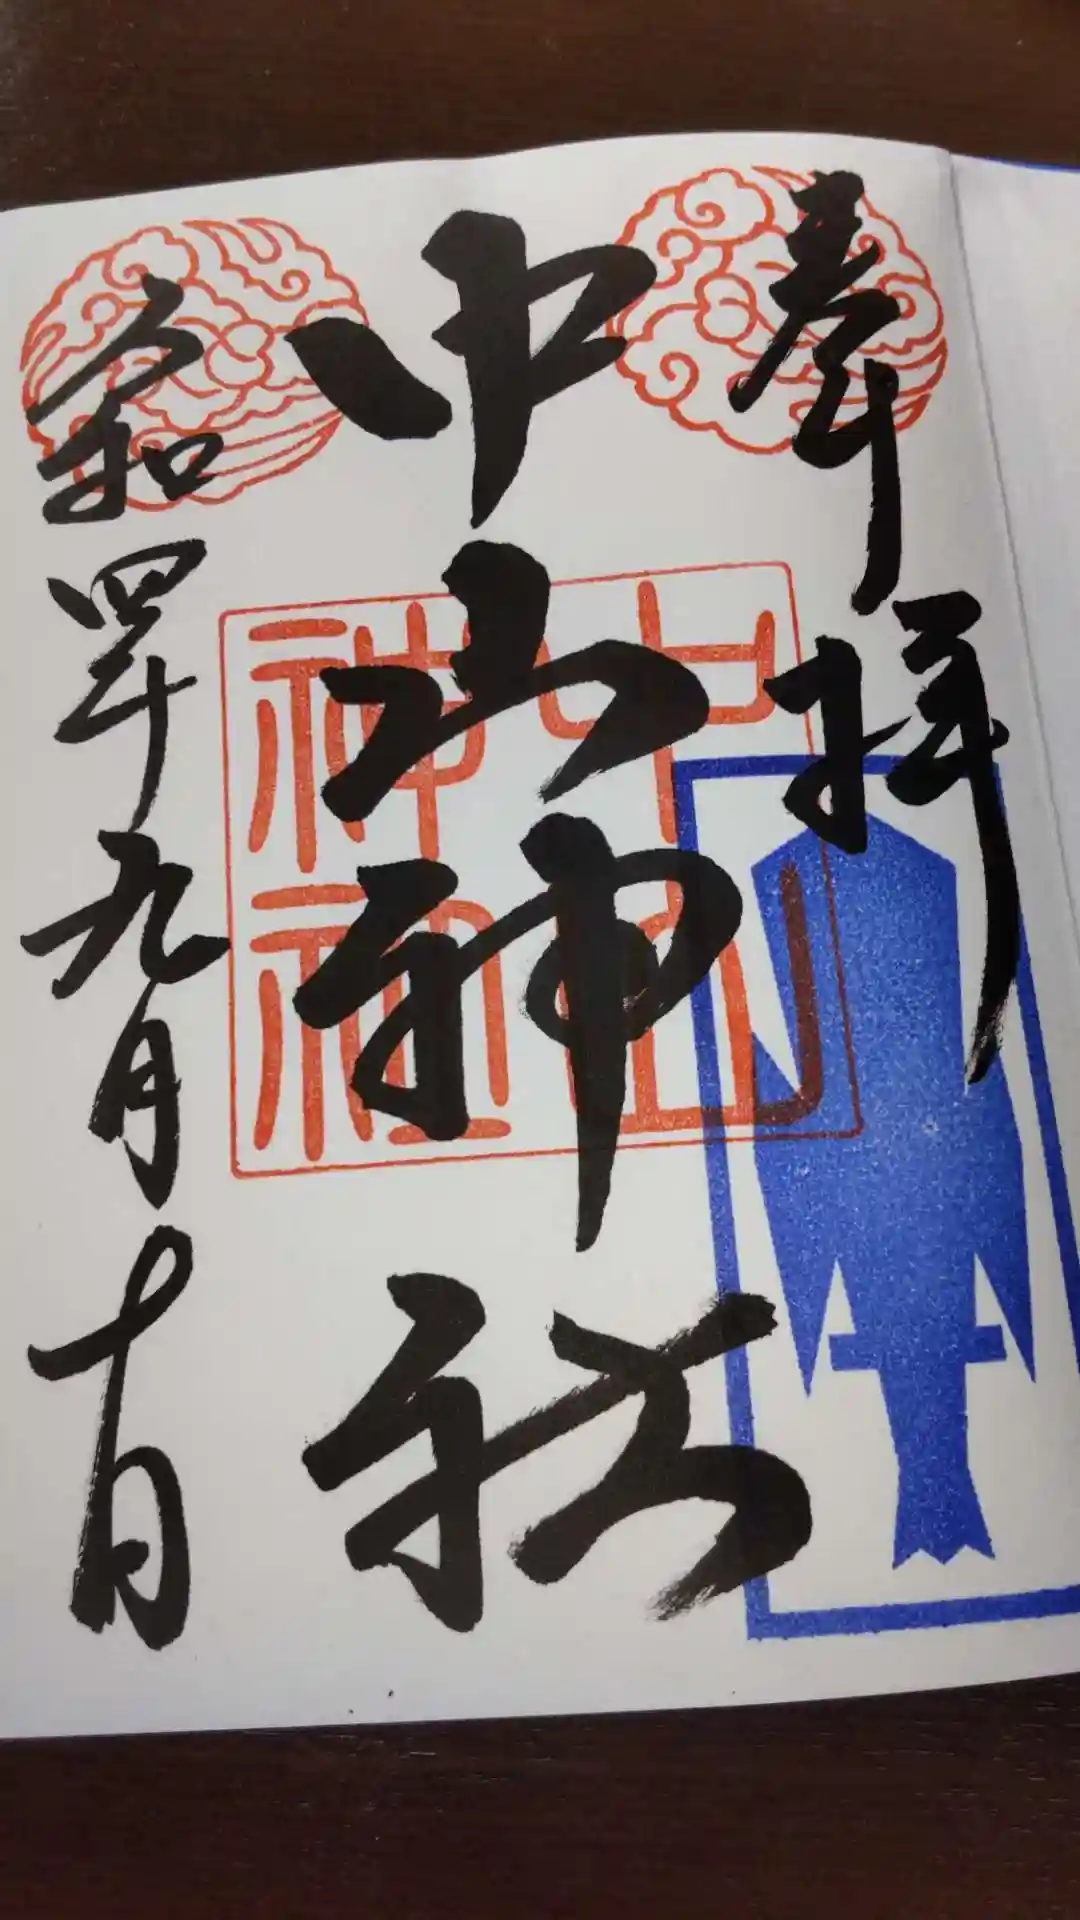 奉拝
中山神社
中山神社
令和四年九月十日